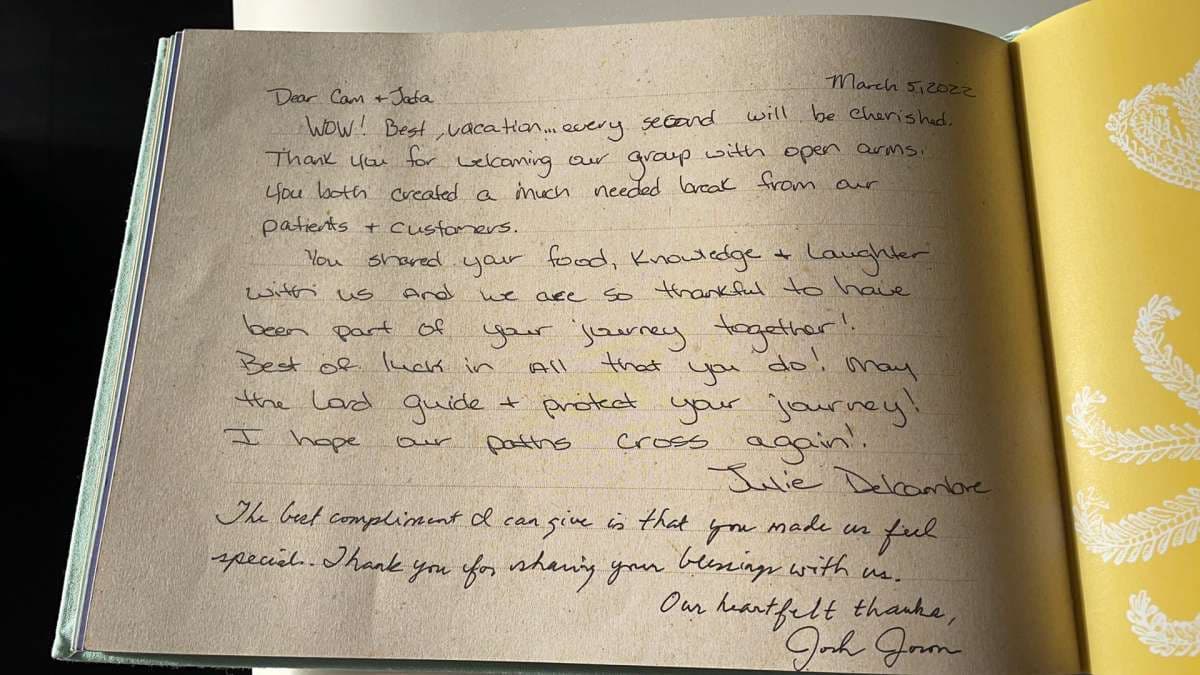 March 5, 2022
Dear Cam + Jada
WOW! Best vacation... every second will be cherished.
Thank you for welcoming our group with open arms.
You both created a much needed break from our
patients + customers.
You shared your food, knowledge + laughter
with us and we are so thankful to have
been part of your journey together!
Best of luck in All that you do! May
the Lord guide + protect your journey!
I hope our paths cross again!
Julie Delcambre
The best compliment I can give is that you made us feel
special. Thank you for sharing your blessings with us.
Our heartfelt thanks,
Josh